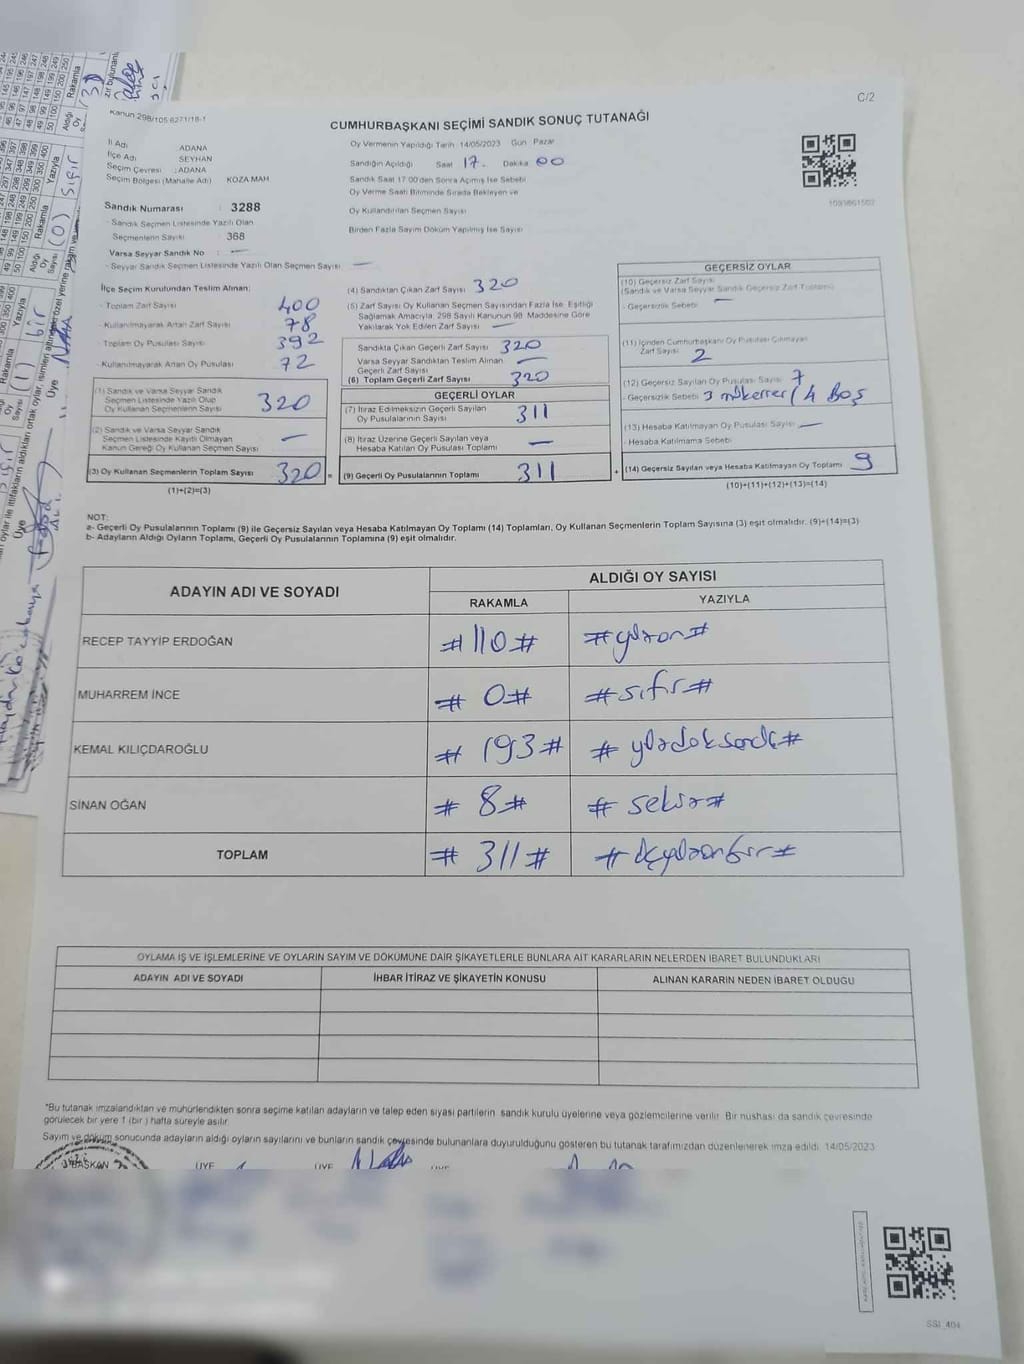 C/2
Kanun 298/105 6271/18-1
CUMHURBAŞKANI SEÇİMİ SANDIK SONUÇ TUTANAĞI
İl Adı ADANA
İlçe Adı SEYHAN
Seçim Çevresi : ADANA
Seçim Bölgesi (Mahalle Adı) KOZA MAH
Oy Vermenin Yapıldığı Tarih 14/05/2023 Gün Pazar
Sandığın Açıldığı Saat 17. Dakika 00
Sandık Saat 17:00'den Sonra Açmış İse Sebebi
Oy Verme Saati Bitiminde Sırada Bekleyen ve
Oy Kullandırılan Seçmen Sayısı
Birden Fazla Sayım Döküm Yapılmış İse Sayısı
Sandık Numarası : 3288
- Sandık Seçmen Listesinde Yazılı Olan
Seçmenlerin Sayısı : 368
Varsa Seyyar Sandık No : —
- Seyyar Sandık Seçmen Listesinde Yazılı Olan Seçmen Sayısı —
İlçe Seçim Kurulundan Teslim Alınan:
- Toplam Zarf Sayısı 400
- Kullanılmayarak Artan Zarf Sayısı 78
- Toplam Oy Pusulası Sayısı 392
- Kullanılmayarak Artan Oy Pusulası 72
(1) Sandık ve Varsa Seyyar Sandık
Seçmen Listesinde Yazılı Olup
Oy Kullanan Seçmenlerin Sayısı 320
(2) Sandık ve Varsa Seyyar Sandık
Seçmen Listesinde Kayıtlı Olmayan
Kanun Gereği Oy Kullanan Seçmen Sayısı —
(3) Oy Kullanan Seçmenlerin Toplam Sayısı 320 =
(1)+(2)=(3)
(4) Sandıktan Çıkan Zarf Sayısı 320
(5) Zarf Sayısı Oy Kullanan Seçmen Sayısından Fazla İse, Eşitliği
Sağlamak Amacıyla, 298 Sayılı Kanunun 98. Maddesine Göre
Yakılarak Yok Edilen Zarf Sayısı —
Sandıkta Çıkan Geçerli Zarf Sayısı 320
Varsa Seyyar Sandıktan Teslim Alınan
Geçerli Zarf Sayısı —
(6) Toplam Geçerli Zarf Sayısı 320
GEÇERLİ OYLAR
(7) İtiraz Edilmeksizin Geçerli Sayılan
Oy Pusulalarının Sayısı 311
(8) İtiraz Üzerine Geçerli Sayılan veya
Hesaba Katılan Oy Pusulası Toplamı —
(9) Geçerli Oy Pusulalarının Toplamı 311 +
GEÇERSİZ OYLAR
(10) Geçersiz Zarf Sayısı
(Sandık ve Varsa Seyyar Sandık Geçersiz Zarf Toplamı)
- Geçersizlik Sebebi —
(11) İçinden Cumhurbaşkanı Oy Pusulası Çıkmayan
Zarf Sayısı 2
(12) Geçersiz Sayılan Oy Pusulası Sayısı 7
- Geçersizlik Sebebi 3 mükerrer / 4 Boş
(13) Hesaba Katılmayan Oy Pusulası Sayısı —
- Hesaba Katılmama Sebebi
(14) Geçersiz Sayılan veya Hesaba Katılmayan Oy Toplamı 9
(10)+(11)+(12)+(13)=(14)
NOT:
a- Geçerli Oy Pusulalarının Toplamı (9) ile Geçersiz Sayılan veya Hesaba Katılmayan Oy Toplamı (14) Toplamları, Oy Kullanan Seçmenlerin Toplam Sayısına (3) eşit olmalıdır. (9)+(14)=(3)
b- Adayların Aldığı Oyların Toplamı, Geçerli Oy Pusulalarının Toplamına (9) eşit olmalıdır.
ADAYIN ADI VE SOYADI ALDIĞI OY SAYISI
RAKAMLA YAZIYLA
RECEP TAYYİP ERDOĞAN #110# #yüzon#
MUHARREM İNCE #0# #sıfır#
KEMAL KILIÇDAROĞLU #193# #yüzdoksanüç#
SİNAN OĞAN #8# #sekiz#
TOPLAM #311# #üçyüzonbir#
OYLAMA İŞ VE İŞLEMLERİNE VE OYLARIN SAYIM VE DÖKÜMÜNE DAİR ŞİKAYETLERLE BUNLARA AİT KARARLARIN NELERDEN İBARET BULUNDUKLARI
ADAYIN ADI VE SOYADI İHBAR İTİRAZ VE ŞİKAYETİN KONUSU ALINAN KARARIN NEDEN İBARET OLDUĞU
*Bu tutanak imzalandıktan ve mühürlendikten sonra seçime katılan adayların ve talep eden siyasi partilerin sandık kurulu üyelerine veya gözlemcilerine verilir. Bir nushası da sandık çevresinde
görülecek bir yere 1 (bir) hafta süreyle asılır.
Sayım ve döküm sonucunda adayların aldığı oyların sayılarını ve bunların sandık çevresinde bulunanlara duyurulduğunu gösteren bu tutanak tarafımızdan düzenlenerek imza edildi. 14/05/2023
BAŞKAN ÜYE ÜYE
SSI_404